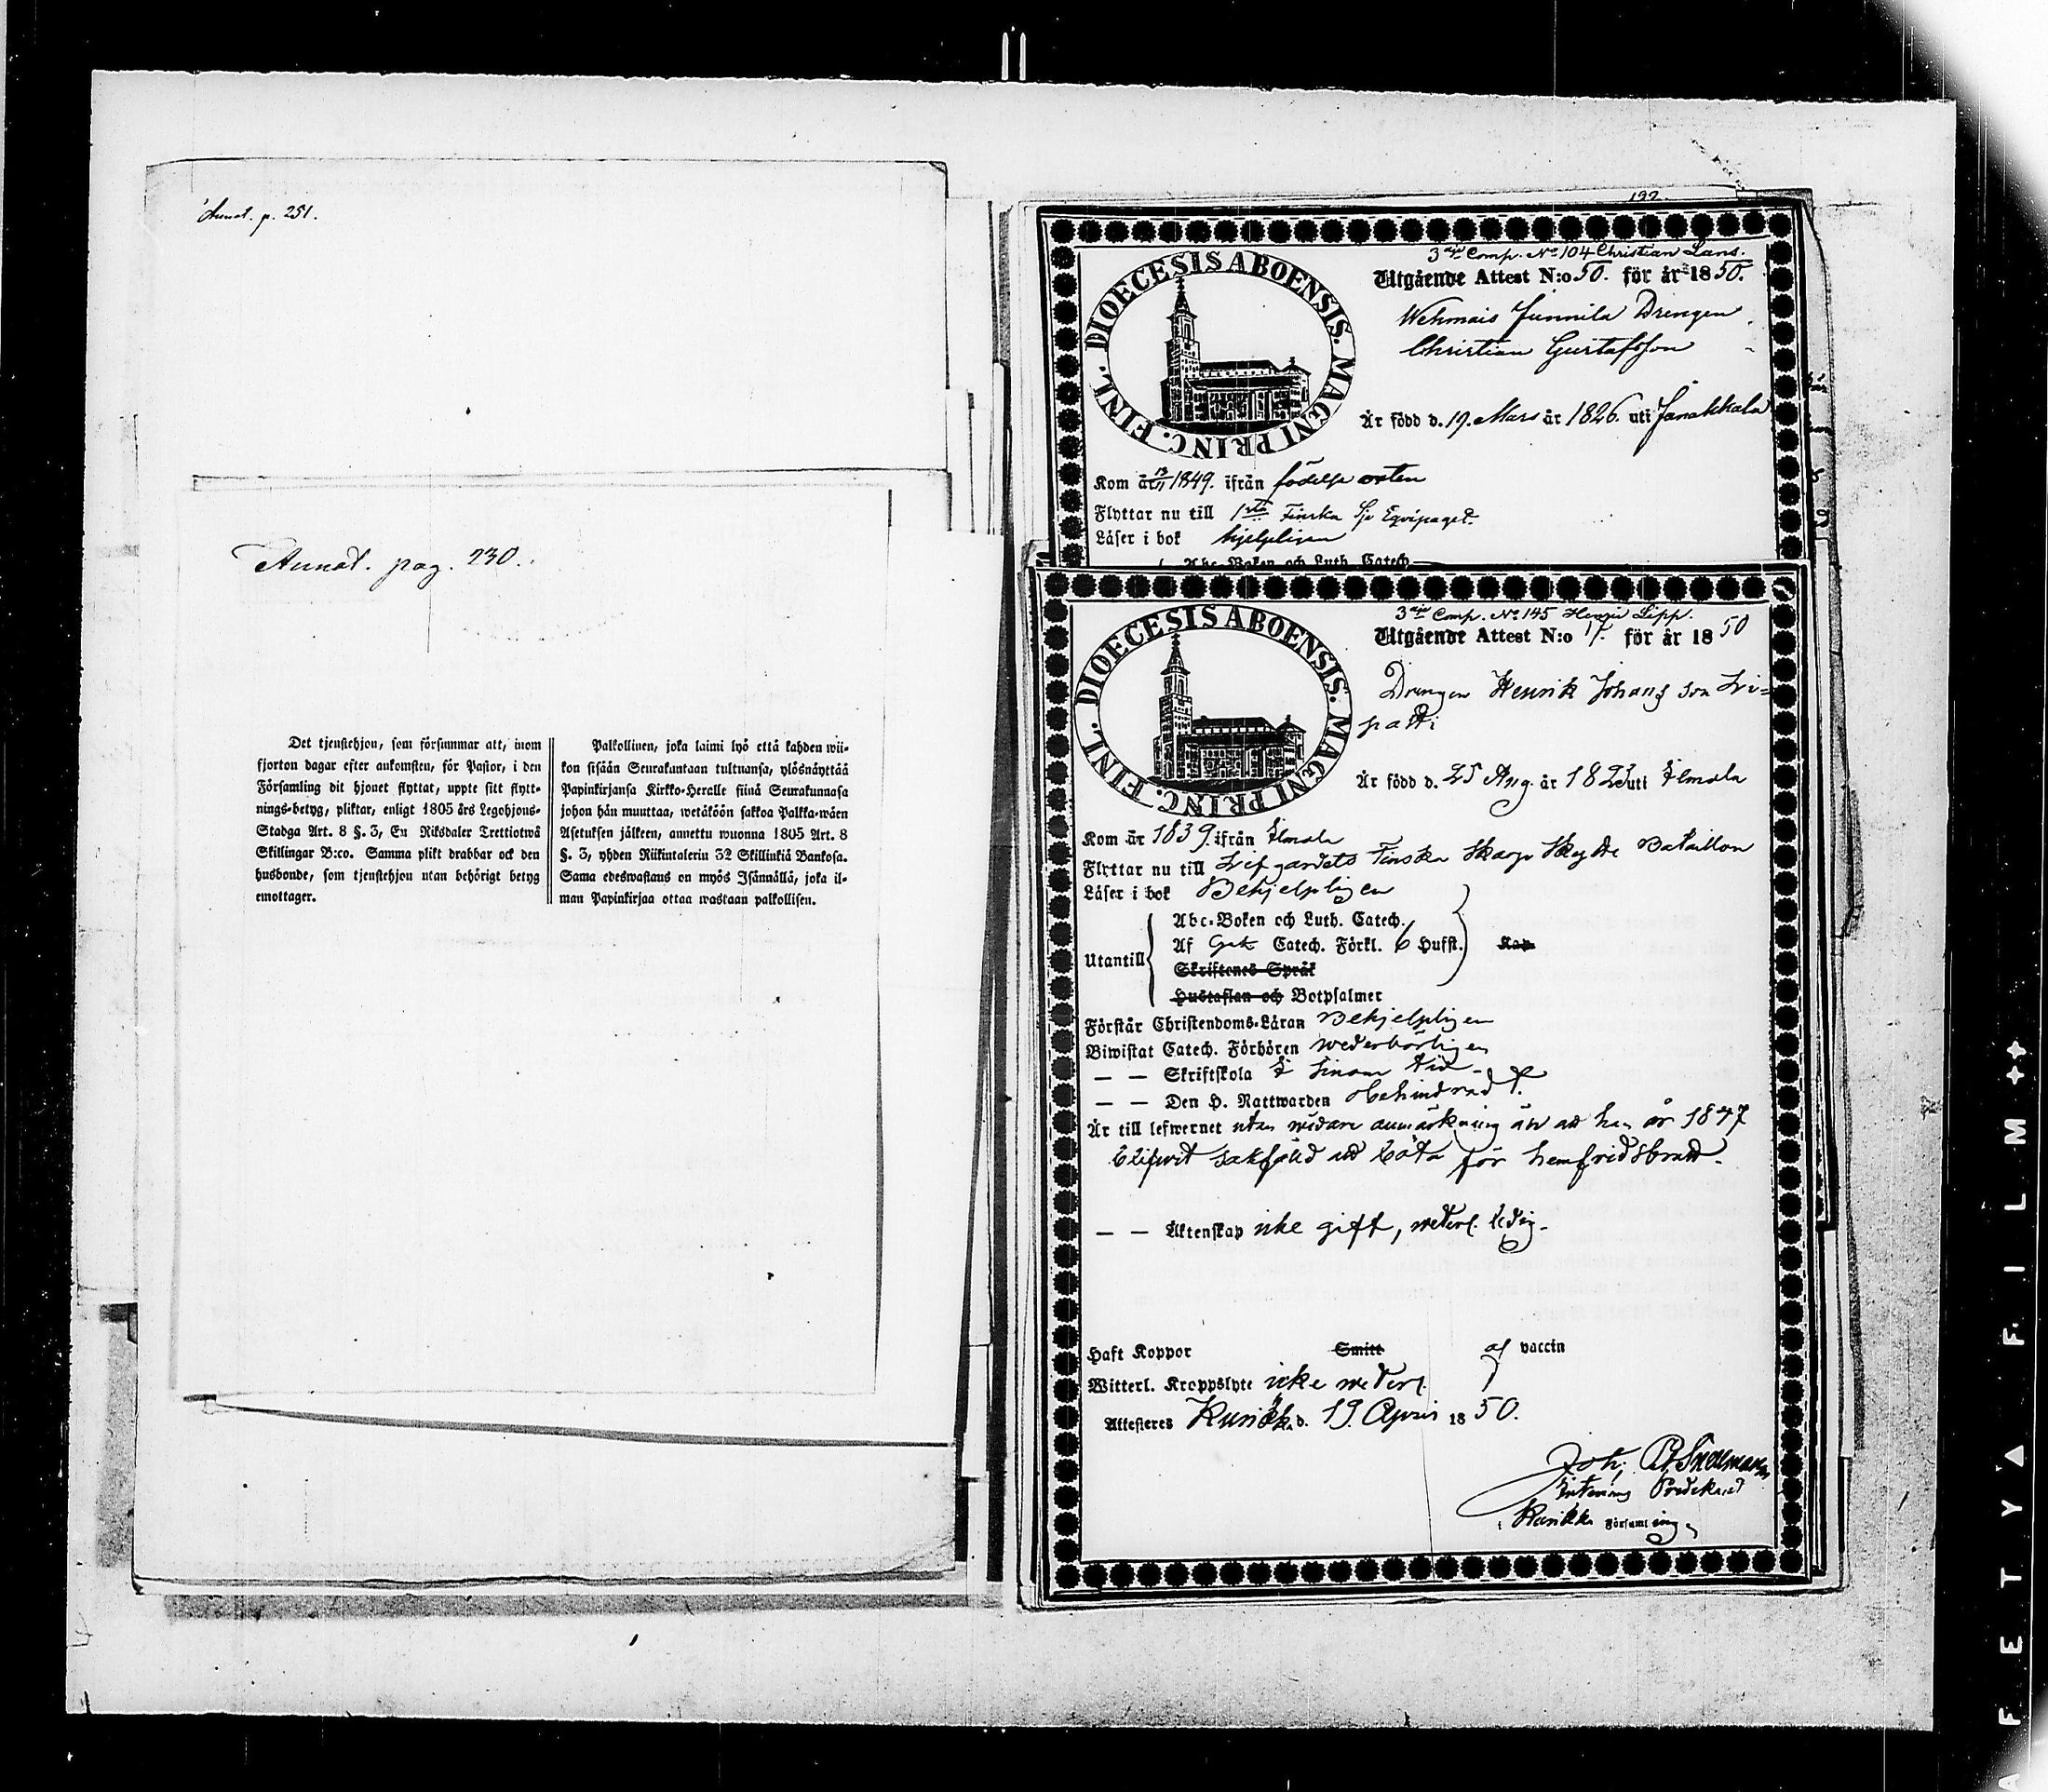 Annot. p. 251.
Annot. pag. 230.
Det tjenstehjon, som försummar att, inom
fjorton dagar efter ankomsten, för Pastor, i den
Församling dit hjonet flyttat, uppte sitt flytt-
nings-betyg, pliktar, enligt 1805 års Legohjons-
Stadga Art. 8 §. 3, En Riksdaler Trettiotwå
Skillingar B:co. Samma plikt drabbar ock den
husbonde, som tjenstehjon utan behörigt betyg
emottager.
Palkollinen, joka laimi lyö että kahden wii-
kon sisään Seurakuntaan tultuansa, ylösnäyttää
Papinkirjansa Kirkko-Heralle siinä Seurakunnasa
johon hän muuttaa, wetäköön sakkoa Palkka-wäen
Asetuksen jälkeen, annettu wuonna 1805 Art. 8
§. 3, yhden Riikintalerin 32 Skillinkiä Bankosa.
Sama edeswastaus on myös Isännällä, joka il-
man Papinkirjaa ottaa wastaan palkollisen.
3 Comp. No 104 Christian Lans.
Utgående Attest N:o 50. för år 1850.
DIOECESIS ABOENSIS. MAGNI PRINC. FINL.
Wehmais Junnila Drengen
Christian Gustafsson
Är född d. 19. Mars år 1826. uti Janakkala
Kom år 1849. ifrån födelse orten
Flyttar nu till 1sta Finska Sjö Equipaget.
Läser i bok hjelpligen
Abc-Boken och Luth. Catech.
3 Comp. No 145 Henric Lipp.
Utgående Attest N:o 17. för år 1850
DIOECESIS ABOENSIS. MAGNI PRINC. FINL.
Drengen Henrik Johansson Li=
patti
Är född d. 25 Aug. år 1823 uti Ilmola
Kom år 1839. ifrån Ilmola
Flyttar nu till Lifgardets Finska Skarp Skytte Bataillon
Läser i bok Behjelpligen
Utantill
Abc-Boken och Luth. Catech.
Af Catech. Förkl. 6 Hufst. Kap
Skriftenes Språk
Hustaflan och Botpsalmer
Förstår Christendoms-Läran Behjelpligen
Biwistat Catech. Förhören wederbörligen
— — Skriftskola I sinom tid
— — Den H. Nattwarden obehindradt.
Är till lefwernet utan widare anmärkning än att han år 1847
blifwit sakfäld att böta för hemfridsbrott.
— — Äktenskap icke gift, weterl. ledig.
Haft Koppor Smitt af vaccin
Witterl. Kroppslyte icke weterl.
Attesteres Kurikka d. 19. April 1850.
Joh. Snellman
Predikant
i Kurikka Församling
A F E T Y ▲ F I L M